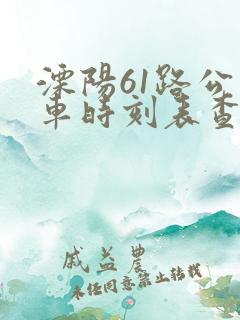 溧陽61路公
車時刻表查
戚益農
未經同意禁止轉載